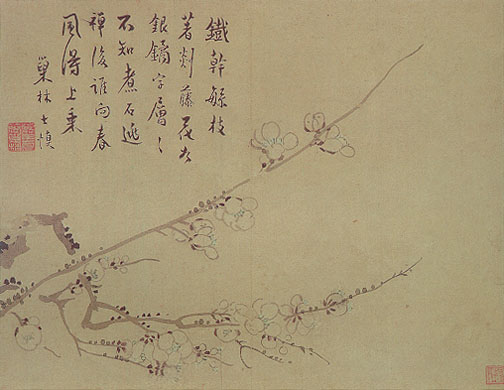 鐵幹緐枝
著剡藤花
銀字層〻
不知煮石逃
禪後誰向春
風得上乘
巢林士慎